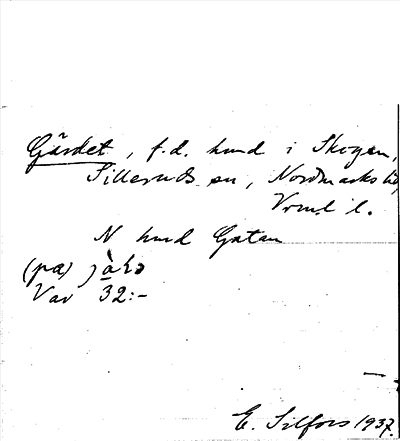 Gärdet, f.d. lund i Skogen,
Silleruds sn, Nordmarks hd,
Vrml. l.
N lund Gatan
(pα)
Var 32:-
E. Silfors 1937.